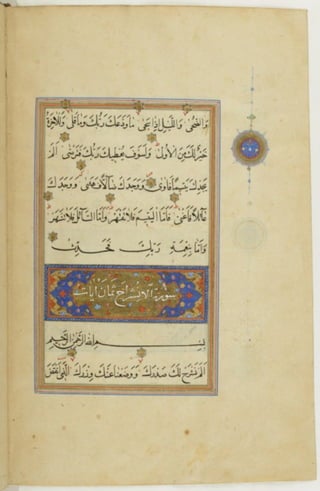 وَالضُّحَىٰ وَاللَّيْلِ إِذَا سَجَىٰ مَا وَدَّعَكَ رَبُّكَ وَمَا قَلَىٰ وَلَلْآخِرَةُ
خَيْرٌ لَكَ مِنَ الْأُولَىٰ وَلَسَوْفَ يُعْطِيكَ رَبُّكَ فَتَرْضَىٰ أَلَمْ
يَجِدْكَ يَتِيمًا فَآوَىٰ وَوَجَدَكَ ضَالًّا فَهَدَىٰ وَوَجَدَكَ
عَائِلًا فَأَغْنَىٰ فَأَمَّا الْيَتِيمَ فَلَا تَقْهَرْ وَأَمَّا السَّائِلَ فَلَا تَنْهَرْ
وَأَمَّا بِنِعْمَةِ رَبِّكَ فَحَدِّثْ
سورة الانشراح ثمان آيات
بِسْمِ اللَّهِ الرَّحْمَٰنِ الرَّحِيمِ
أَلَمْ نَشْرَحْ لَكَ صَدْرَكَ وَوَضَعْنَا عَنْكَ وِزْرَكَ الَّذِي أَنْقَضَ